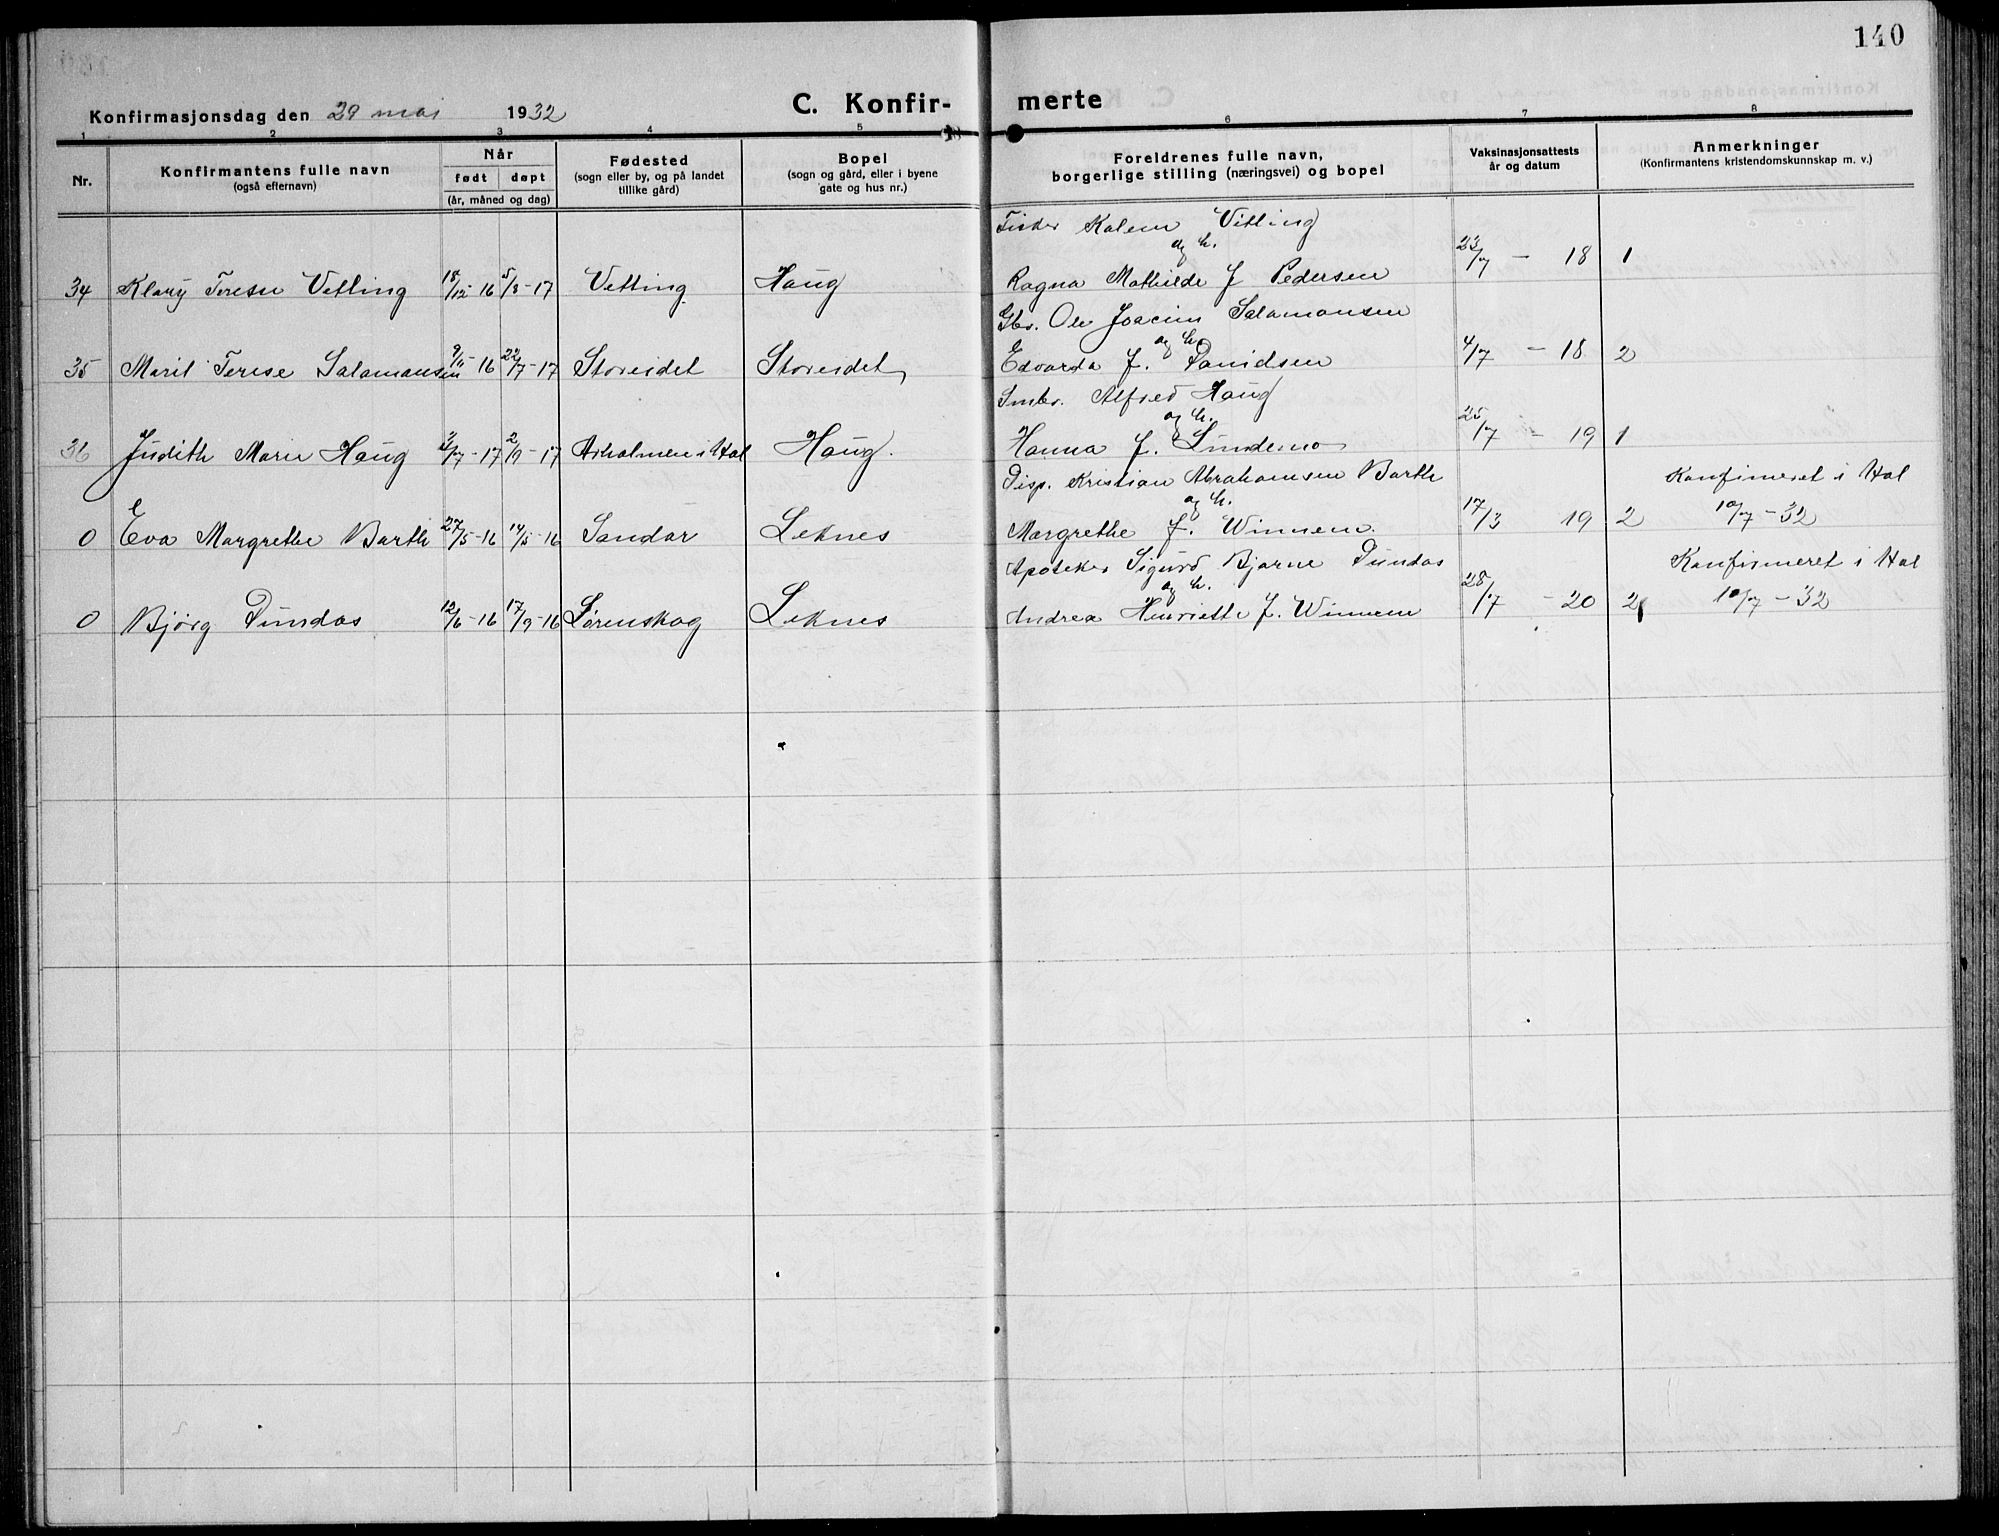 140
Konfirmasjonsdag den 29 mai 1932
C. Konfir- merte
1 2 3 4 5 6 7 8
Nr.
Konfirmantens fulle navn
(også efternavn)
Når
født døpt
(år, måned og dag)
Fødested
(sogn eller by, og på landet
tillike gård)
Bopel
(sogn og gård, eller i byene
gate og hus nr.)
Foreldrenes fulle navn,
borgerlige stilling (næringsvei) og bopel
Vaksinasjonsattests
år og datum
Anmerkninger
(Konfirmantens kristendomskunnskap m. v.)
Fisker Kalem Vetting
og h.
34 Klary Terese Vetting 18/12-16 5/8-17 Vetting Haug Ragna Mathilde f Pedersen 23/7 - 18 1
Gbr. Ole Joacim Salamonsen
og h.
35 Marit Terese Salamonsen 9/11-16 22/7-17 Storeidet Storeidet Edvarda f. Danidsen 4/7 - 18 2
Smbr. Alfred Haug
og h.
36 Judith Marie Haug 3/7-17 2/9-17 i Hol Haug. Hanna f. Lindemo 25/7 - 19 1
Disp. Kristian Abrahamsen Barth Konfirmeret i Hol
og h.
0 Eva Margrethe Barth 27/5-16 14/8-16 Sandar Leknes Margrethe f. Winnem 17/3 19 2 10/7-32
Apoteker Sigurd Bjarne Dundas Konfirmeret i Hol
og h.
0 Bjørg Dundas 12/6-16 17/9-16 Lørenskog Leknes Andrea Henriette f. Winnem 28/7 - 20 2 10/7-32